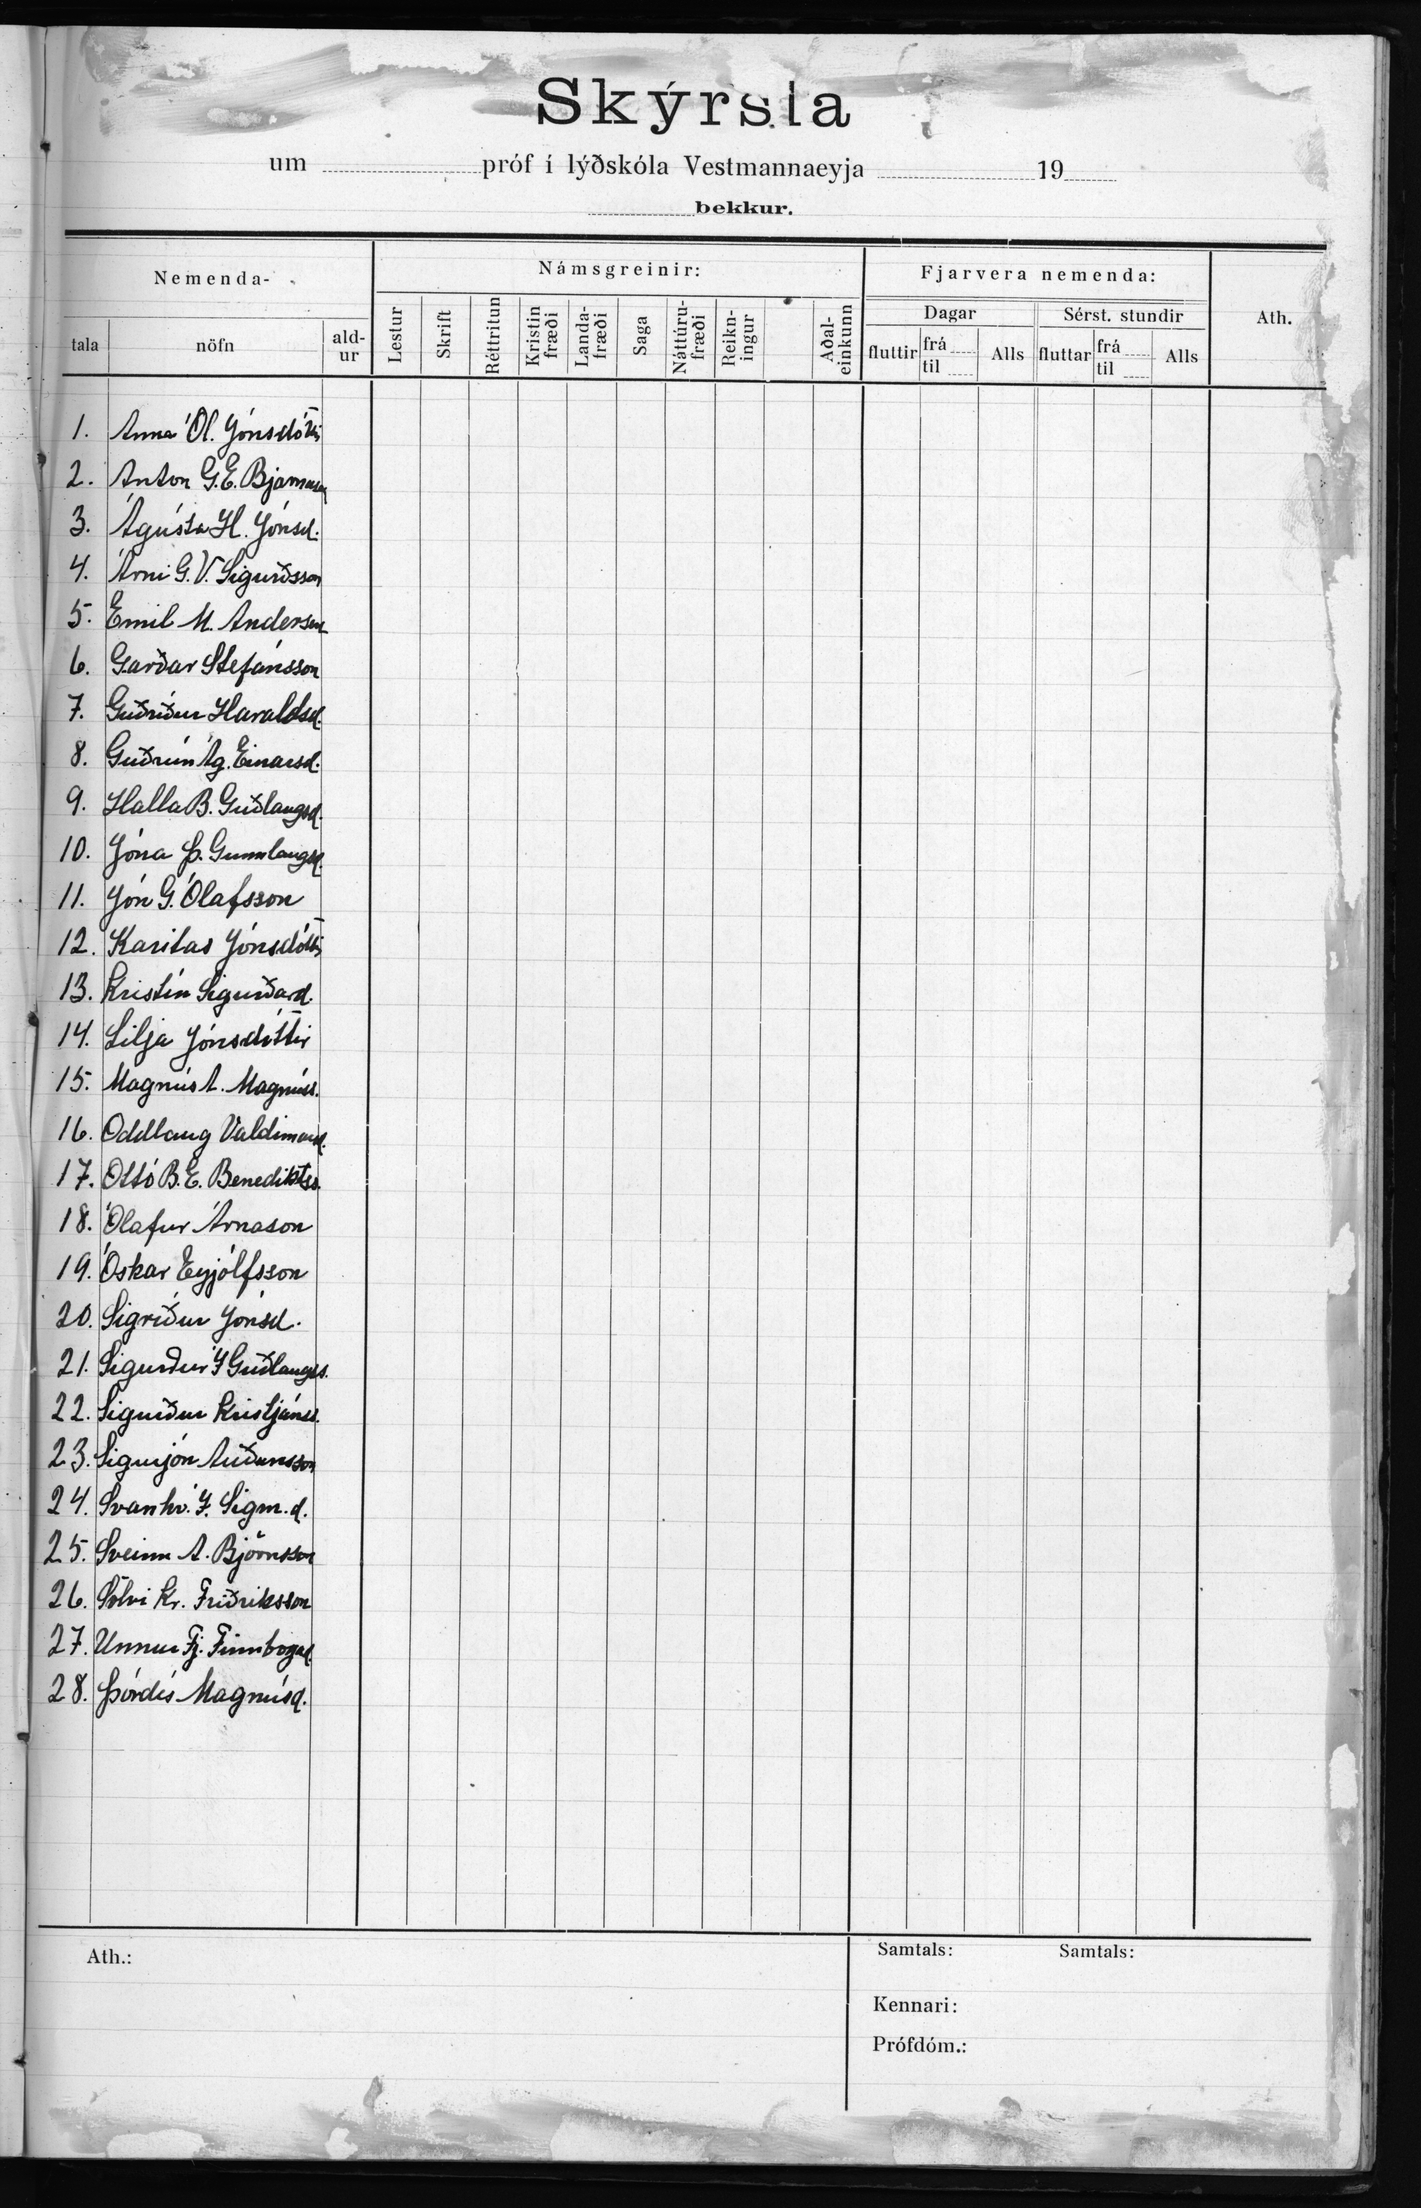 Skýrsla
um próf í lýðskóla Vestmannaeyja 19
bekkur.
Nemenda-
Námsgreinir:
Fjarvera nemenda:
Ath.
tala
nöfn
ald-
ur
Lestur
Skrift
Réttritun
Kristin
fræði
Landa-
fræði
Saga
Náttúru-
fræði
Reikn-
ingur
Aðal-
einkunn
Dagar
Sérst. stundir
fluttir
frá
til
Alls
fluttar
frá
til
Alls
1. Anna Ól. Jónsdóttir
2. Anton G.E. Bjarnason
3. Ágústa H. Jónsd.
4. Árni G.V. Sigurðsson
5. Emil M. Andersen
6. Garðar Stefánsson
7. Guðríður Haraldsd.
8. Guðrún Ág. Einarsd.
9. Halla B. Guðlaugsd.
10. Jóna Þ. Gunnlaugsd.
11. Jón G. Ólafsson
12. Karitas Jónsdóttir
13. Kristín Sigurðard.
14. Lilja Jónsdóttir
15. Magnús A. Magnúss.
16. Oddlaug Valdimarsd.
17. Ottó B.E. Benediktss.
18. Ólafur Árnason
19. Óskar Eyjólfsson
20. Sigríður Jónsd.
21. Sigurður Í Guðlaugss.
22. Sigurður Kristjánss.
23. Sigurjón Auðunsson
24. Svanhv. I. Sigm.d.
25. Sveinn A. Björnsson
26. Sölvi Kr. Friðriksson
27. Unnur Fj. Finnbogad.
28. Þórdís Magnúsd.
Ath.:
Samtals:
Samtals:
Kennari:
Prófdóm.: